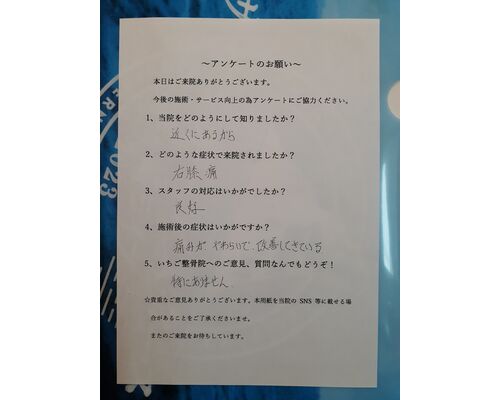 ～アンケートのお願い～
本日はご来院ありがとうございます。
今後の施術・サービス向上の為アンケートにご協力ください。
1、当院をどのようにして知りましたか？
近くにあるから
2、どのような症状で来院されましたか？
右膝痛
3、スタッフの対応はいかがでしたか？
良好
4、施術後の症状はいかがですか？
痛みが やわらいで、改善してきている
5、いちご整骨院へのご意見、質問なんでもどうぞ！
特にありません
☆貴重なご意見ありがとうございます。本用紙を当院の SNS 等に載せる場
合があることをご了承くださいませ。
またのご来院をお待ちしています。
2023